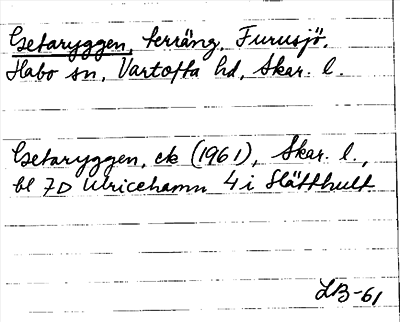 Getaryggen, terräng, Furusjö,
Habo sn, Vartofta hd, Skar. l.
Getaryggen, ek (1961), Skar. l.,
bl 7D Ulricehamn 4i Slätthult
LB-61